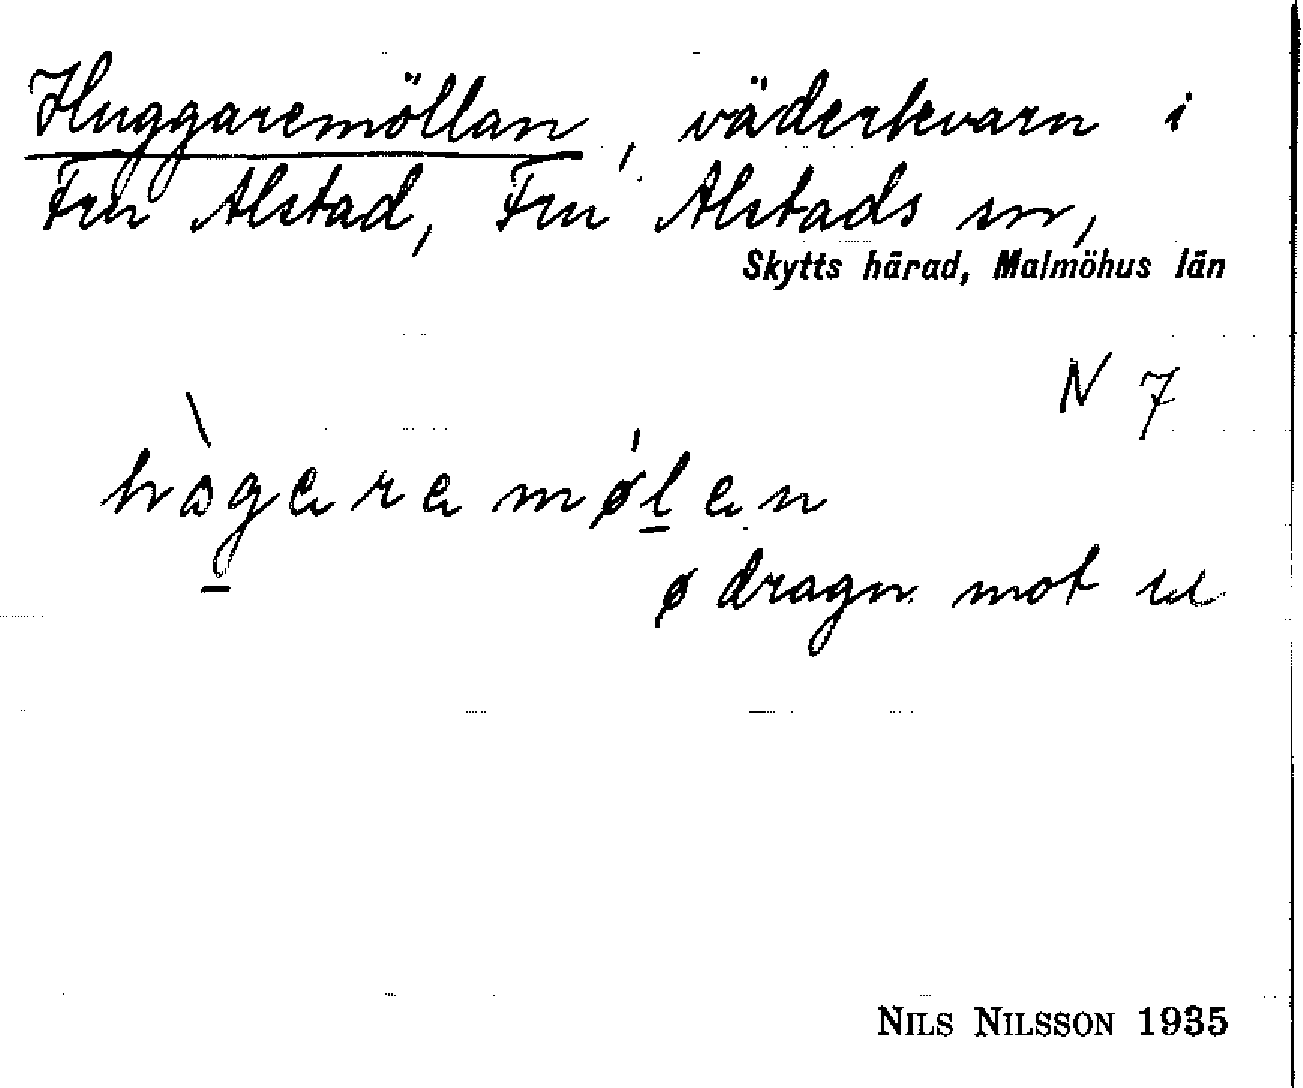 Huggaremöllan, väderkvarn i
Fru Alstad, Fru Alstads sn,
Skytts härad, Malmöhus län
N 7
hògeremǿlen
ø dragn. mot
NILS NILSSON 1935